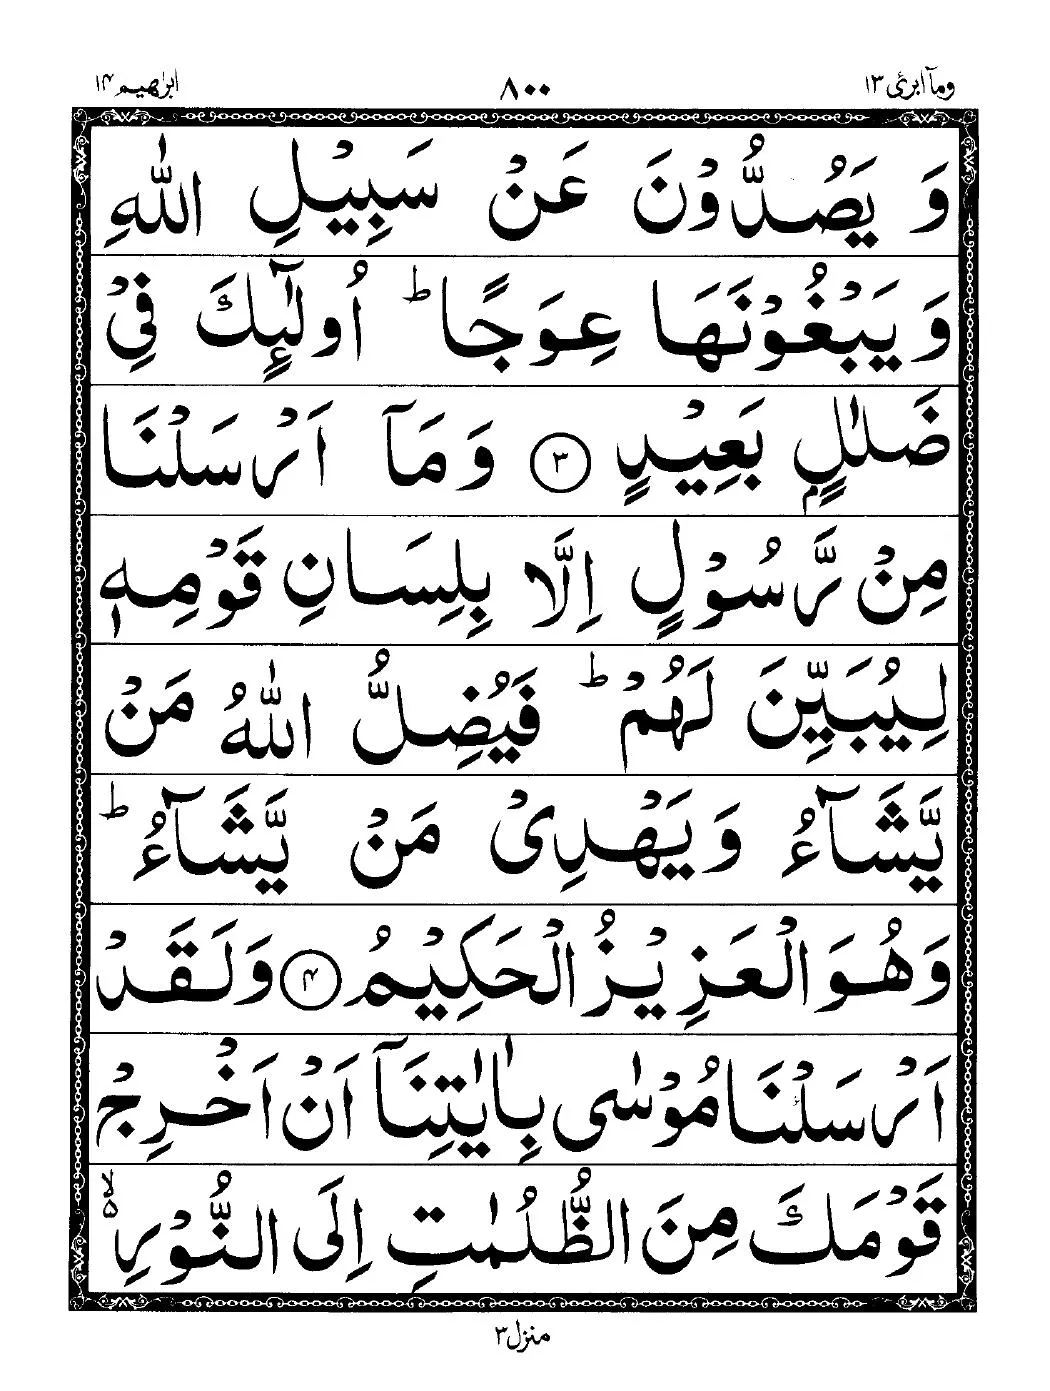 وماۤ ابرئ ۱۳ ۸۰۰ ابرٰهیم ۱۴
وَ یَصُدُّوْنَ عَنْ سَبِیْلِ اللّٰهِ
وَ یَبْغُوْنَهَا عِوَجًا ؕ اُولٰٓىِٕكَ فِیْ
ضَلٰلٍۭ بَعِیْدٍ ﴿۳﴾ وَ مَاۤ اَرْسَلْنَا
مِنْ رَّسُوْلٍ اِلَّا بِلِسَانِ قَوْمِهٖ
لِیُبَیِّنَ لَهُمْ ؕ فَیُضِلُّ اللّٰهُ مَنْ
یَّشَآءُ وَ یَهْدِیْ مَنْ یَّشَآءُ ؕ
وَ هُوَ الْعَزِیْزُ الْحَكِیْمُ ﴿۴﴾ وَ لَقَدْ
اَرْسَلْنَا مُوْسٰی بِاٰیٰتِنَاۤ اَنْ اَخْرِجْ
قَوْمَكَ مِنَ الظُّلُمٰتِ اِلَی النُّوْرِ ۙ۬
منزل ۳